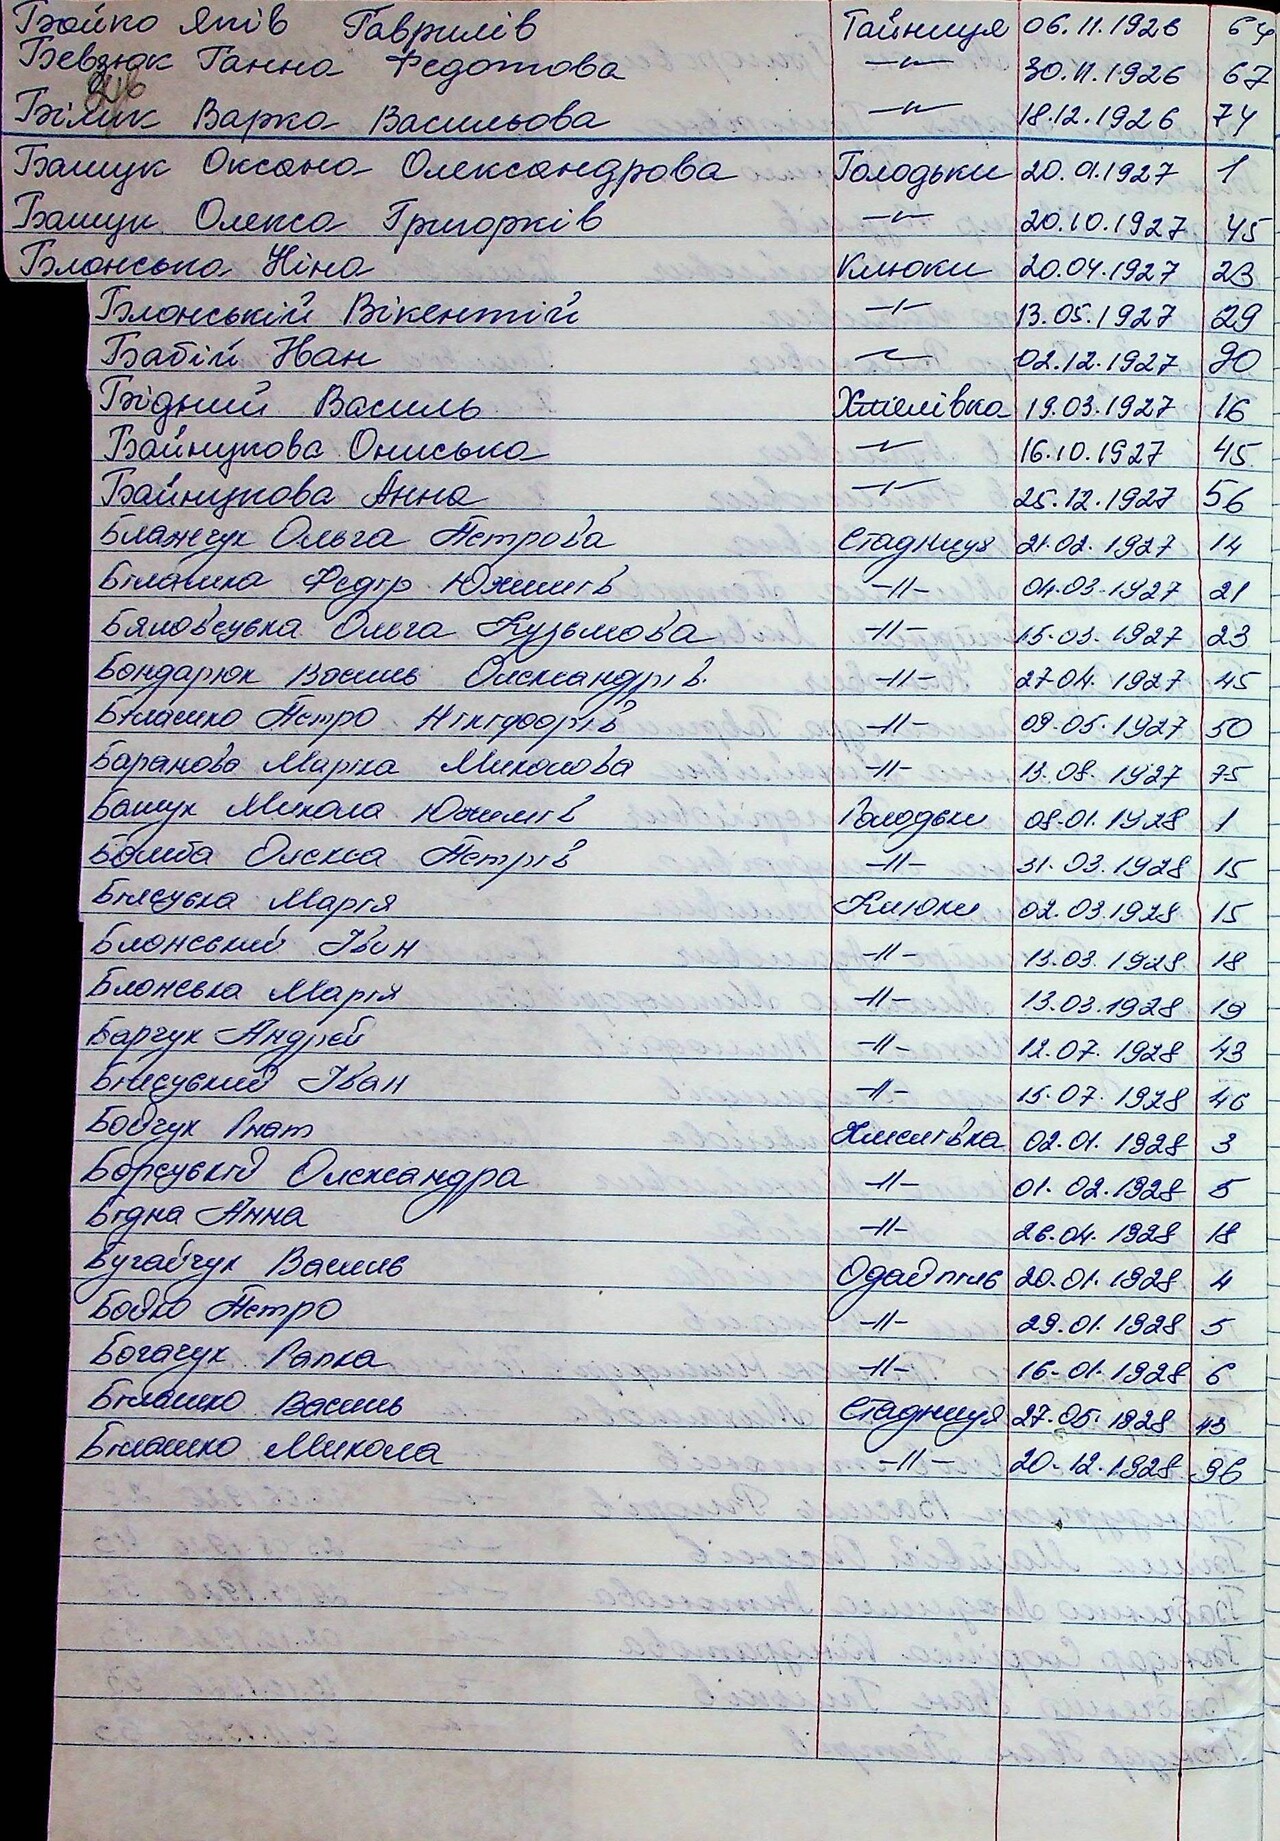 Бойко Яків Гаврилів Тайниця 06.11.1926 64
Бевзюк Ганна Федотова -"- 30.11.1926 67
Білик Варка Васильова -"- 18.12.1926 74
Башук Оксана Олександрова Голодьки 20.01.1927 1
Башук Олекса Григорків -"- 20.10.1927 45
Блонська Ніна Клюки 20.04.1927 23
Блонській Вікентій -"- 13.05.1927 29
Бабій Іван -"- 02.12.1927 90
Бідний Василь Хмелівка 19.03.1927 16
Байнукова Ониська -"- 16.10.1927 45
Байнукова Анна -"- 25.12.1927 56
Блажчук Ольга Петрова Стадниця 21.02.1927 14
Білашка Федір Юхимів -//- 04.03.1927 21
Бяловсуька Ольга Кузьмова -//- 15.03.1927 23
Бондарюк Василь Олександрів -//- 27.04.1927 45
Білашко Петро Нікіфорів -//- 09.05.1927 50
Баранова Марка Миколова -//- 13.08.1927 75
Башук Микола Юхимів Голодьки 08.01.1928 1
Бомба Олекса Петрів -//- 31.03.1928 15
Білєуька Марія Клюки 02.03.1928 15
Блонський Іван -//- 13.03.1928 18
Блонська Марія -//- 13.03.1928 19
Барчук Андрєй -//- 12.07.1928 43
Білєуький Іван -//- 15.07.1928 46
Бойчук Гнат Хмелівка 02.01.1928 3
Борєуькій Олександра -//- 01.02.1928 5
Бідна Анна -//- 26.04.1928 18
Бугайчук Василь Одайпіль 20.01.1928 4
Бойко Петро -//- 29.01.1928 5
Богачук Гапка -//- 16.01.1928 6
Білашко Василь Стадниця 27.05.1928 43
Білашко Микола -//- 20.12.1928 96